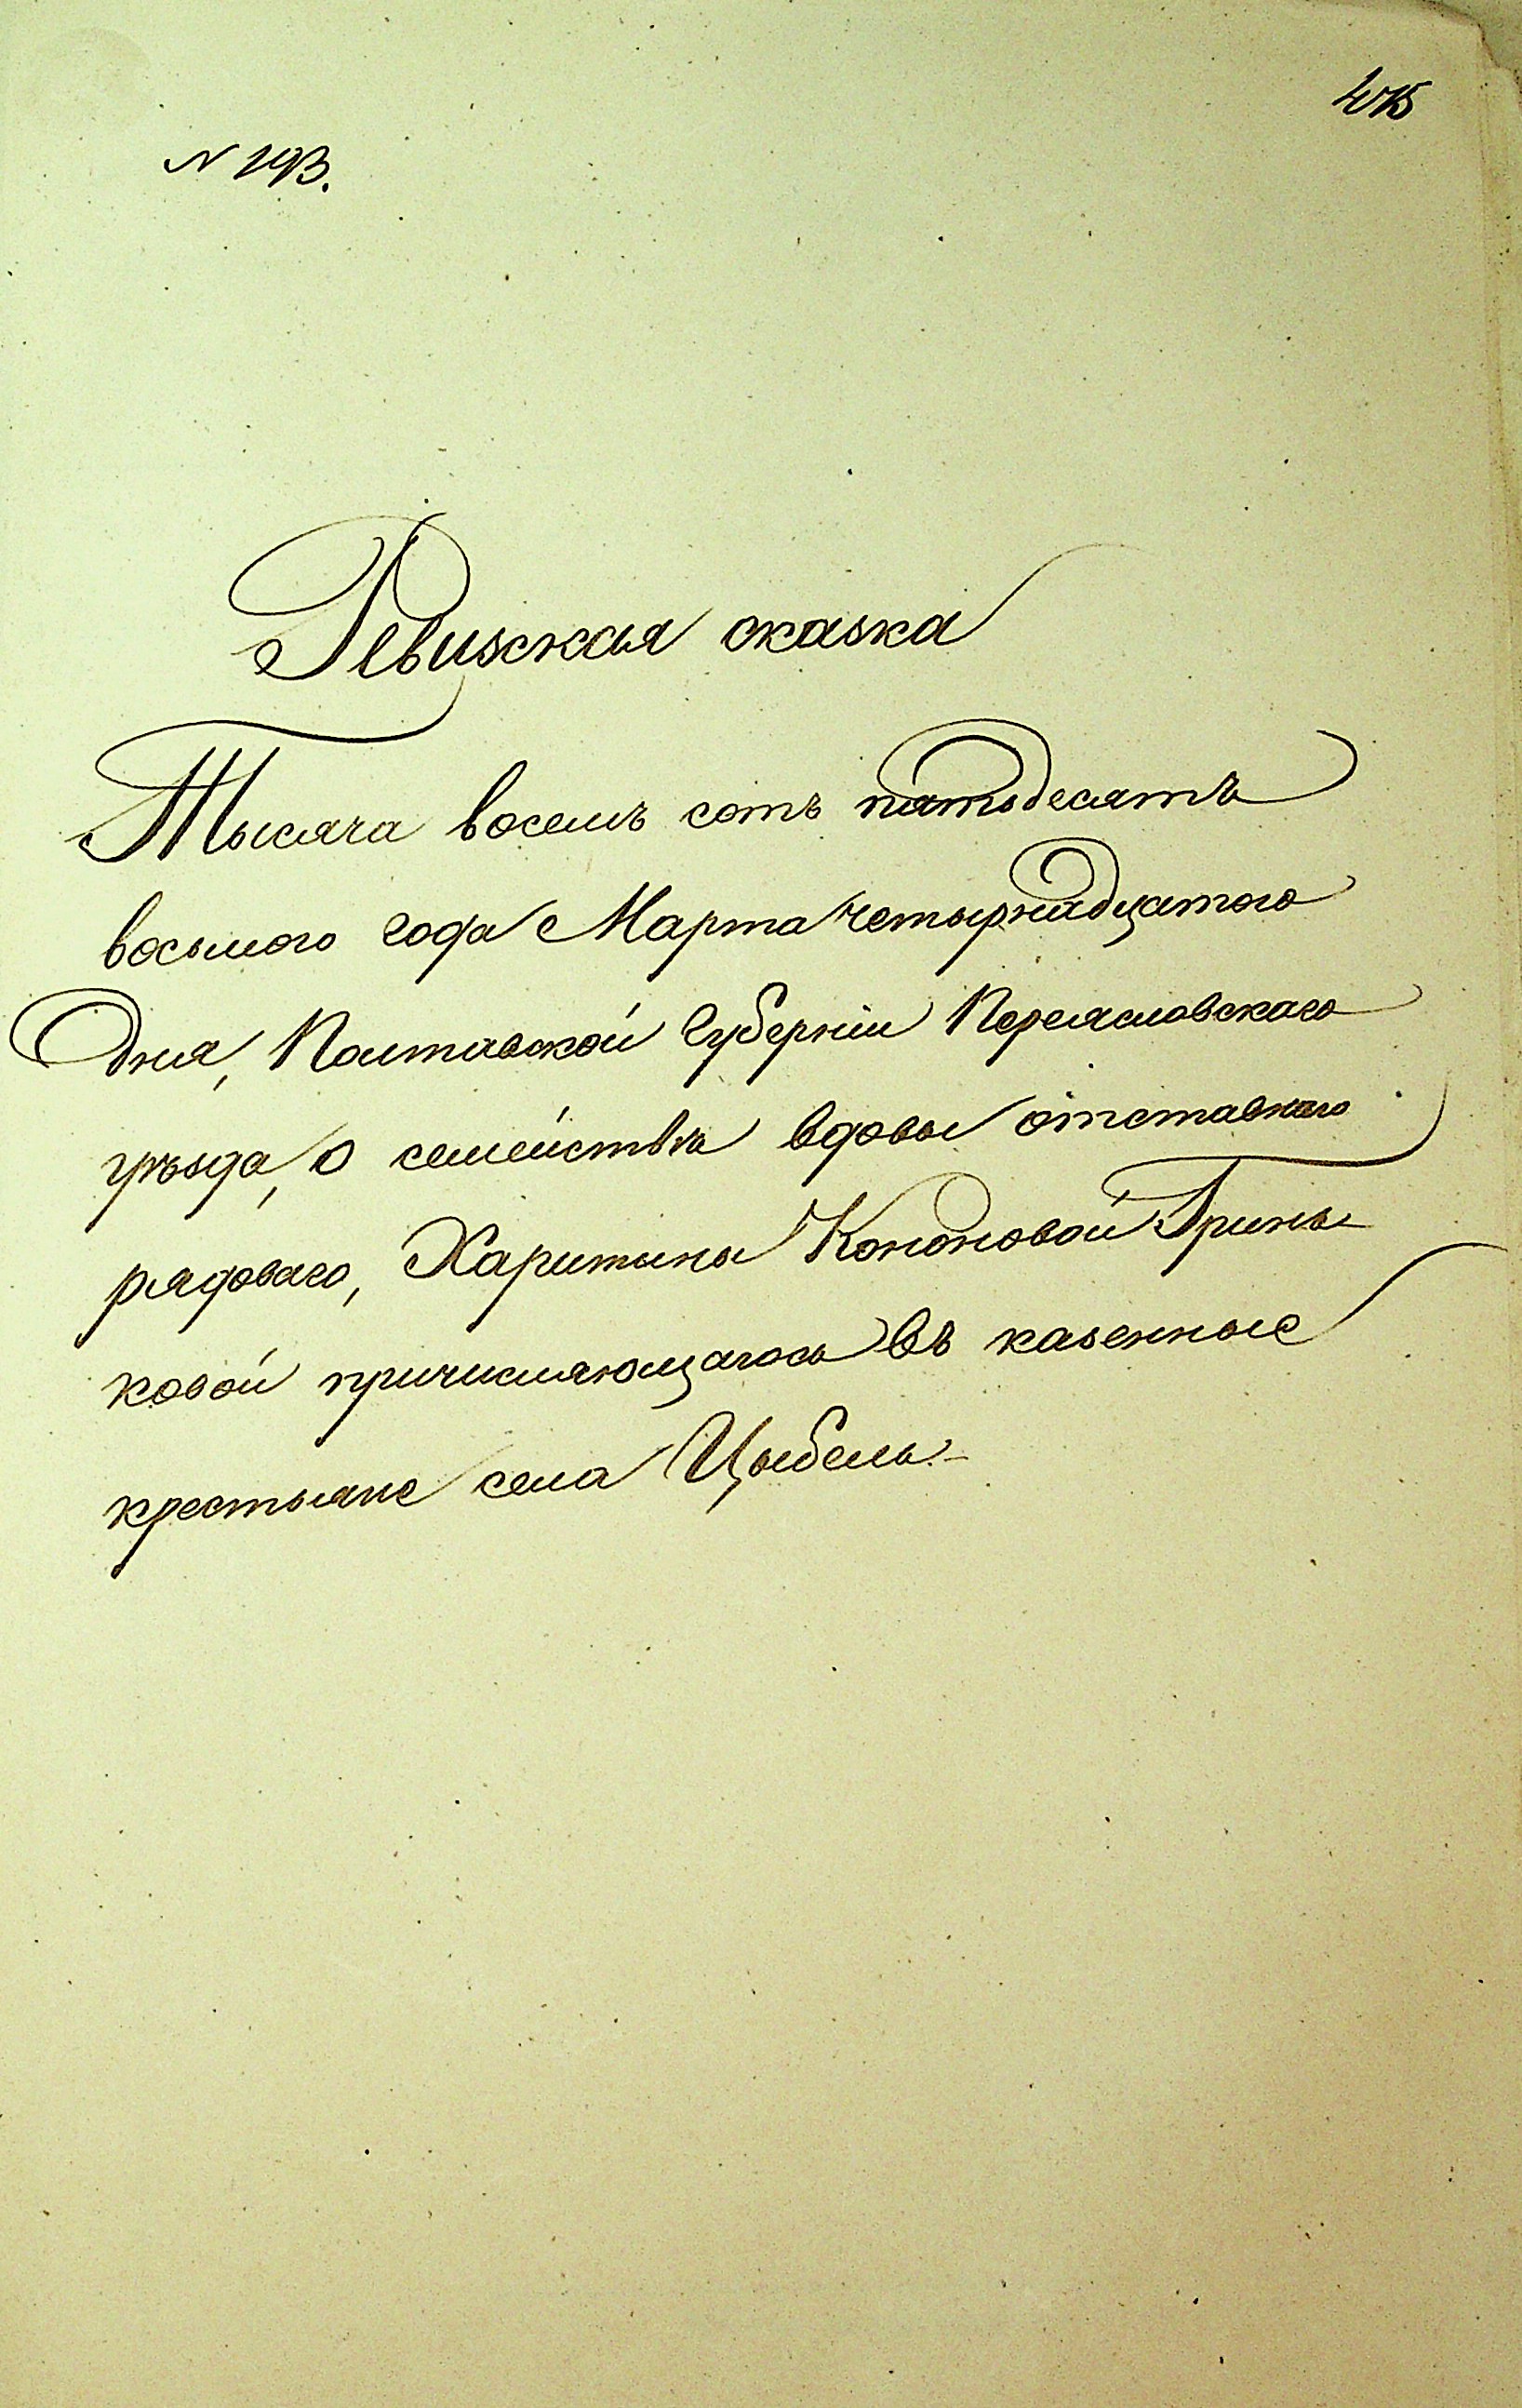 475
N 293.
Ревизская сказка
Тысяча восемь сотъ пятьдесятъ
восьмого года Марта четырнадцатого
дня, Полтавской Губерніи Переяславскаго
уѣзда, о семействѣ вдовы отставнаго
рядоваго, Харитины Кононовой Гринь-
ковой причисляющагось въ казенные
крестьяне села Цыбель.-